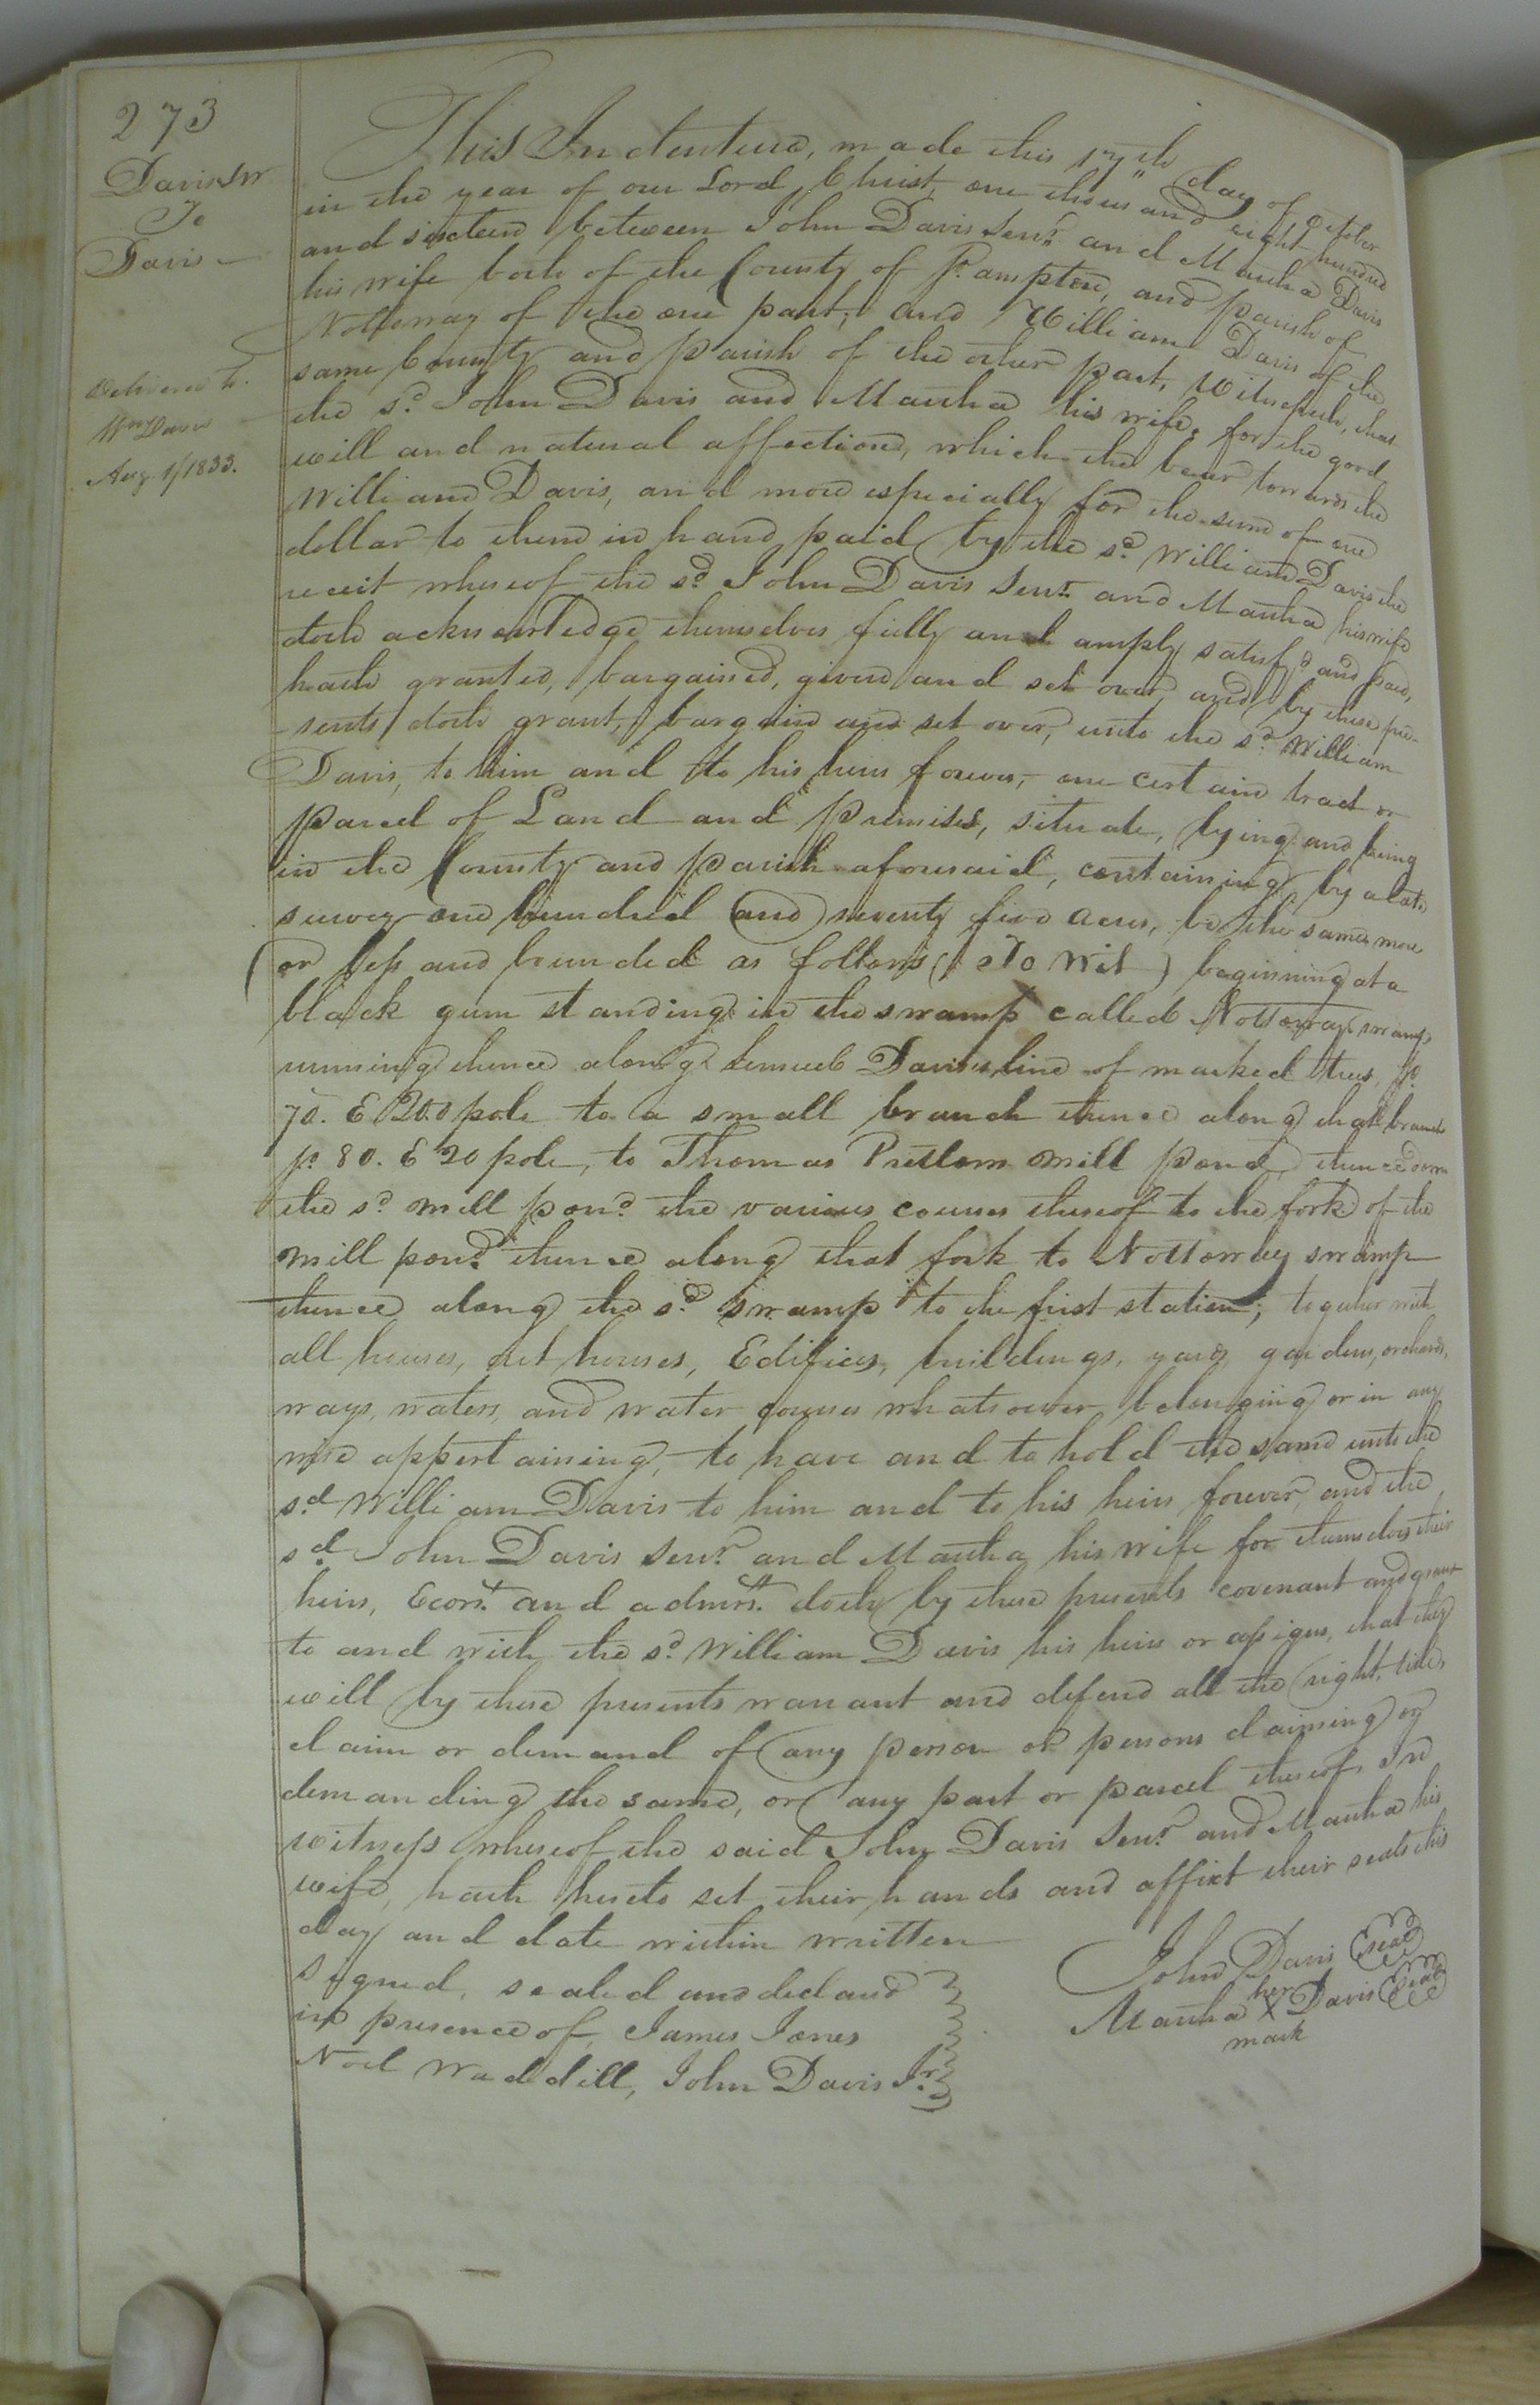 273
Davis Snr
To
Davis
Delivered to
Wm Davis
Aug. 1/1833.
This Indenture, made this 17th day of October
in the year of our Lord, Christ, one thousand eight hundred
and sixteen between John Davis Senr. and Martha Davis
his wife both of the County of So.ampton, and parish of
Nottoway of the one part, and William Davis of the
same County and parish of the other part, Witnesseth, that
the sd. John Davis and Martha his wife, for the good
will and natural affection, which the bear towards the
William Davis, and more especially for the sum of one
dollar to them in hand paid by the sd. William Davis the
receit whereof the sd. John Davis Senr. and Martha his wife
doth acknowledge themselves fully and amply satisfd. and paid,
hath granted, bargained, given and set over, and by these pre-
sents doth grant, bargain and set over, unto the sd. William
Davis, to him and to his heirs forever, one certain tract or
parcel of Land and premises, situate, lying and being
in the County and parish aforesaid, containing by a late
survey one hundred and seventy five acres, be the same more
or less and bounded as follows (To Wit) beginning at a
black gum standing in the swamp called Nottoway swamp
running thence along Lemuel Davis's line of marked trees, So.
70. E 200 pole to a small branch thence along that branch
So. 80. E 20 pole, to Thomas Pretlow mill pond, thence down
the sd. mill pond. the various courses thereof to the fork of the
mill pond. thence along that fork to Nottoway swamp
thence along the sd. swamp to the first station; together with
all houses, out houses, Edifices, buildings, yards gardens, orchards,
ways, waters, and water courses whatsoever belonging or in any
wise appertaining, to have and to hold the same unto the
sd. William Davis to him and to his heirs forever, and the
sd. John Davis Senr. and Martha his wife for themselves their
heirs, Ecors. and admrs. doth by these presents covenant and grant
to and with the sd. William Davis his heirs or assigns, that they
will by these presents warrant and defend all the right, title,
claim or demand of any person or persons claiming or
demanding the same, or any part or parcel thereof. In
witness whereof the said John Davis Senr. and Martha his
wife, hath hereto set their hands and affixt their seals this
day and date within written
Signed, sealed and ded and
in presence of, James Jones
Noel Waddill, John Davis Jr.
John Davis (seal)
her
Martha X Davis (seal)
mark